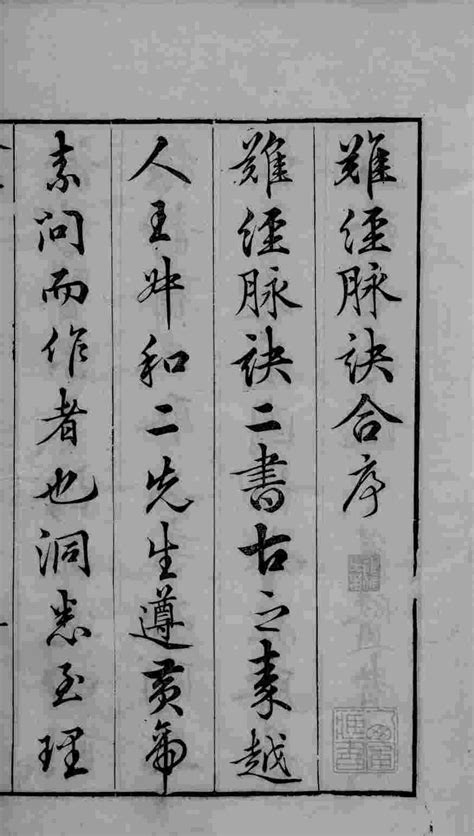 難經脉訣合序
難經脉訣二書古之秦越
人王叔和二先生遵黃帝
素問而作者也洞悉至理